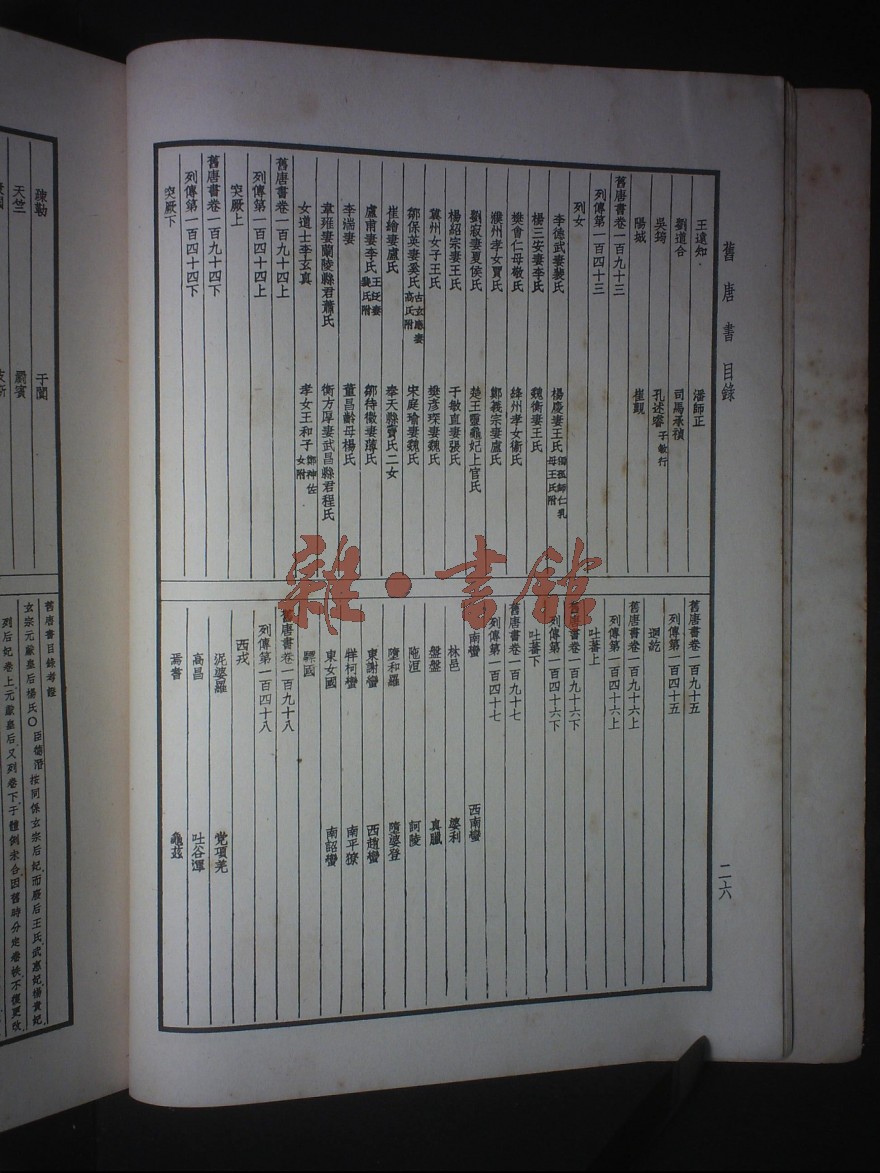 舊唐書 目錄
二六
王遠知 潘師正
劉道合 司馬承禎
吳筠 孔述睿 子敏行
陽城 崔覲
舊唐書卷一百九十三
列傳第一百四十三
列女
李德武妻裴氏 楊慶妻王氏 獨孤師仁乳母王氏附
楊三安妻李氏 魏衡妻王氏
樊會仁母敬氏 絳州孝女衞氏
濮州孝女賈氏 鄭義宗妻盧氏
劉寂妻夏侯氏 楚王靈龜妃上官氏
楊紹宗妻王氏 于敏直妻張氏
冀州女子王氏 樊彥琛妻魏氏
鄒保英妻奚氏 古玄應妻高氏附 宋庭瑜妻魏氏
崔繪妻盧氏 奉天縣竇氏二女
盧甫妻李氏 王泛妻裴氏附 鄒待徵妻薄氏
李湍妻 董昌齡母楊氏
韋雍妻蘭陵縣君蕭氏 衡方厚妻武昌縣君程氏
女道士李玄真 孝女王和子 鄭神佐女附
舊唐書卷一百九十四上
列傳第一百四十四上
突厥上
舊唐書卷一百九十四下
列傳第一百四十四下
突厥下
舊唐書卷一百九十五
列傳第一百四十五
迴紇
舊唐書卷一百九十六上
列傳第一百四十六上
吐蕃上
舊唐書卷一百九十六下
列傳第一百四十六下
吐蕃下
舊唐書卷一百九十七
列傳第一百四十七
南蠻 西南蠻
林邑 婆利
盤盤 真臘
陁洹 訶陵
墮和羅 墮婆登
東謝蠻 西趙蠻
牂柯蠻 南平獠
東女國 南詔蠻
驃國
舊唐書卷一百九十八
列傳第一百四十八
西戎
泥婆羅 党項羌
高昌 吐谷渾
焉耆 龜茲
疏勒 于闐
天竺 罽賓
舊唐書目錄考證
玄宗元獻皇后楊氏〇臣德潛按同係玄宗后妃而廢后王氏武惠妃楊貴妃
列后妃卷上元獻皇后又列卷下于體例未合因舊時分定卷帙不復更改
雜·書館